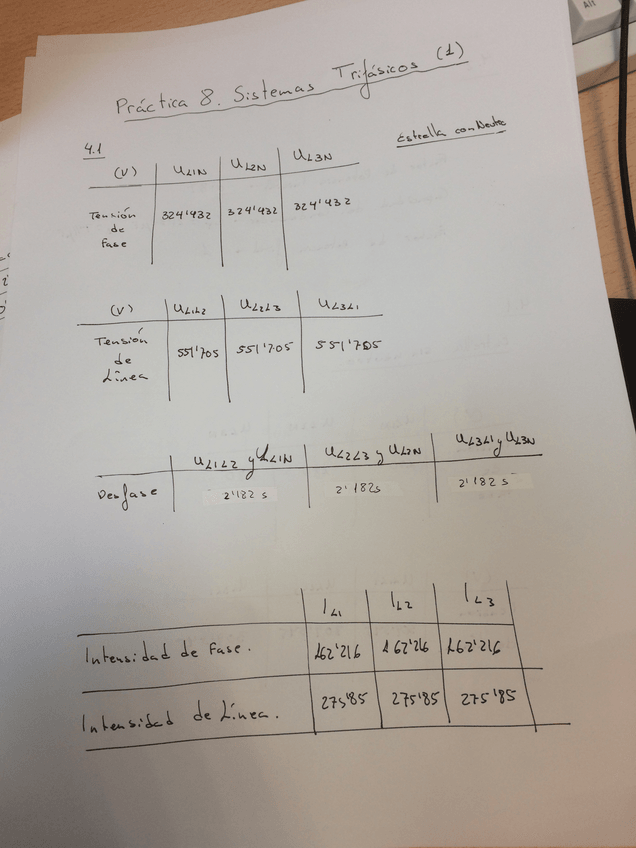 Práctica 8. Sistemas Trifásicos (1)
4.1
Estrella con Neutro
(V) UL1N UL2N UL3N
Tensión de Fase 324'432 324'432 324'432
(V) UL1L2 UL2L3 UL3L1
Tensión de Línea 551'705 551'705 551'705
UL1L2 y UL1N UL2L3 y UL2N UL3L1 y UL3N
Desfase 2'182 s 2'182s 2'182 s
IL1 IL2 IL3
Intensidad de Fase. 162'216 162'216 162'216
Intensidad de Línea. 275'85 275'85 275'85
Alt